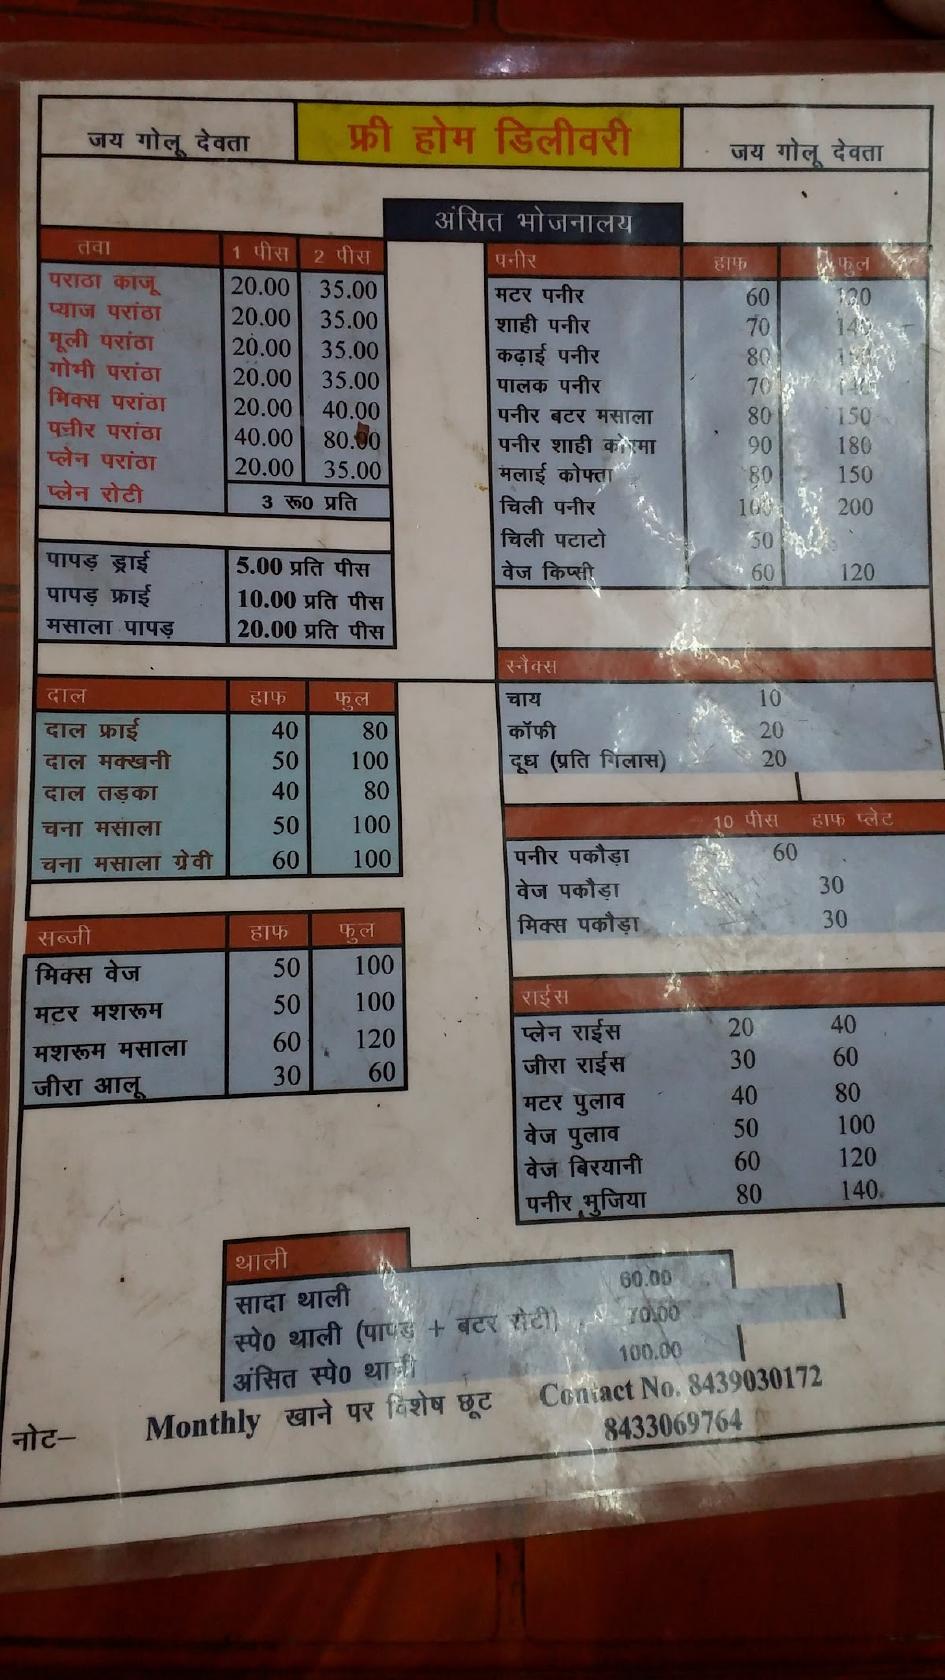 जय गोलू देवता
फ्री होम डिलीवरी
जय गोलू देवता
अंसित भोजनालय
तवा 1 पीस 2 पीस
पराठा काजू 20.00 35.00
प्याज परांठा 20.00 35.00
मूली परांठा 20.00 35.00
गोभी परांठा 20.00 35.00
मिक्स परांठा 20.00 40.00
पनीर परांठा 40.00 80.00
प्लेन परांठा 20.00 35.00
प्लेन रोटी 3 रू0 प्रति
पापड़ ड्राई 5.00 प्रति पीस
पापड़ फ्राई 10.00 प्रति पीस
मसाला पापड़ 20.00 प्रति पीस
दाल हाफ फुल
दाल फ्राई 40 80
दाल मक्खनी 50 100
दाल तड़का 40 80
चना मसाला 50 100
चना मसाला ग्रेवी 60 100
सब्जी हाफ फुल
मिक्स वेज 50 100
मटर मशरूम 50 100
मशरूम मसाला 60 120
जीरा आलू 30 60
पनीर हाफ फुल
मटर पनीर 60 120
शाही पनीर 70 140
कढ़ाई पनीर 80
पालक पनीर 70
पनीर बटर मसाला 80 150
पनीर शाही कोरमा 90 180
मलाई कोफ्ता 80 150
चिली पनीर 100 200
चिली पटाटो 50
वेज किप्सी 60 120
स्नैक्स
चाय 10
कॉफी 20
दूध (प्रति गिलास) 20
10 पीस हाफ प्लेट
पनीर पकौड़ा 60
वेज पकौड़ा 30
मिक्स पकौड़ा 30
राईस
प्लेन राईस 20 40
जीरा राईस 30 60
मटर पुलाव 40 80
वेज पुलाव 50 100
वेज बिरयानी 60 120
पनीर भुजिया 80 140
थाली
सादा थाली 60.00
स्पे0 थाली (पापड़ + बटर रोटी) 70.00
अंसित स्पे0 थाली 100.00
नोट– Monthly खाने पर विशेष छूट Contact No. 8439030172
8433069764